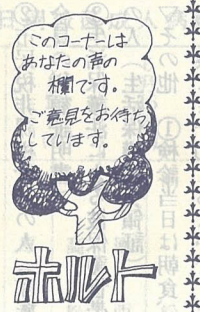 このコーナーは
あなたの声の
欄です。
ご意見をお待ち
しています。
ホルト